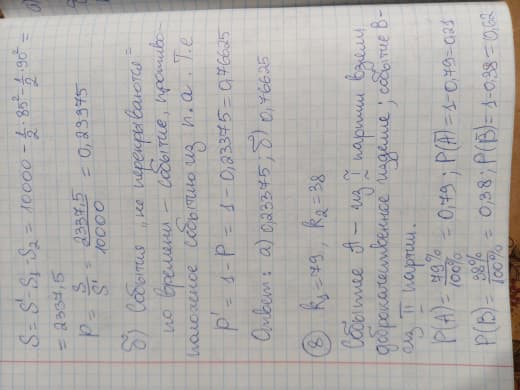 S = S' - S₁ - S₂ = 10000 - 1/2 · 85² - 1/2 · 90² =
= 2337,5
P = S/S' = 2337,5/10000 = 0,23375
б) События „не перекрываются"
по времени – событие, противо-
положное событию из п. а. Т.е
P' = 1 - P = 1 - 0,23375 = 0,76625
Ответ: а) 0,23375; б) 0,76625
⑧ k₁ = 79, k₂ = 38
Событие A – из I партии взяли
доброкачественное изделие; событие B –
из II партии.
P(A) = 79%/100% = 0,79; P(A̅) = 1-0,79=0,21
P(B) = 38%/100% = 0,38; P(B̅) = 1-0,38 = 0,62